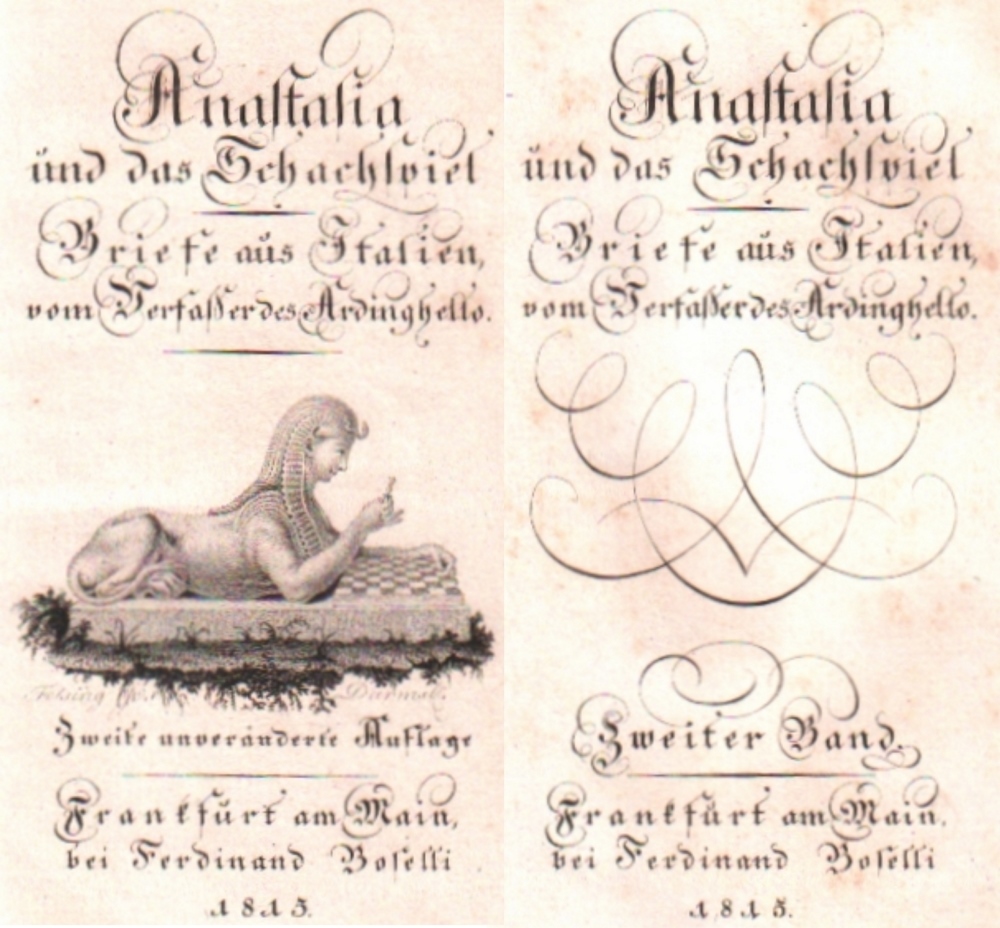 Anaſtaſia
und das Schachſpiel
Briefe aus Italien,
vom Verfaſſer des Ardinghello.
Zweite unveränderte Auflage
Frankfurt am Main,
bei Ferdinand Boſelli
1815.
Anaſtaſia
und das Schachſpiel
Briefe aus Italien,
vom Verfaſſer des Ardinghello.
Zweiter Band.
Frankfurt am Main.
bei Ferdinand Boſelli
1815.